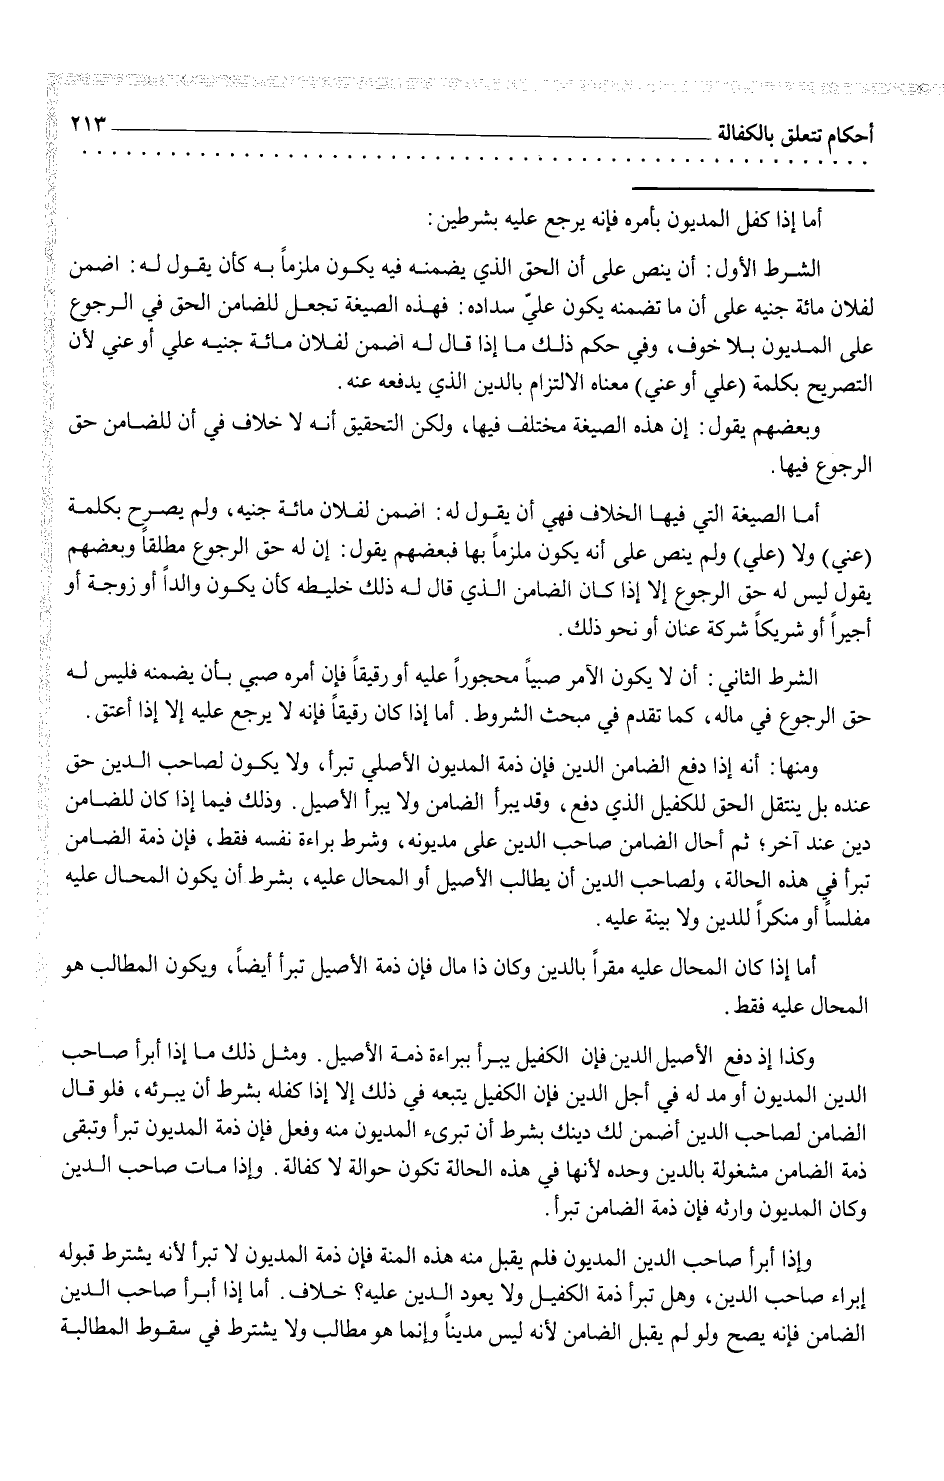 أحكام تتعلق بالكفالة ـــــــــــ ٢١٣
أما إذا كفل المديون بأمره فإنه يرجع عليه بشرطين:
الشرط الأول: أن ينص على أن الحق الذي يضمنه فيه يكون ملزماً به كأن يقول له: اضمن
لفلان مائة جنيه على أن ما تضمنه يكون عليّ سداده: فهذه الصيغة تجعل للضامن الحق في الرجوع
على المديون بلا خوف، وفي حكم ذلك ما إذا قال له اضمن لفلان مائة جنيه علي أو عني لأن
التصريح بكلمة (علي أو عني) معناه الالتزام بالدين الذي يدفعه عنه.
وبعضهم يقول: إن هذه الصيغة مختلف فيها، ولكن التحقيق أنه لا خلاف في أن للضامن حق
الرجوع فيها.
أما الصيغة التي فيها الخلاف فهي أن يقول له: اضمن لفلان مائة جنيه، ولم يصرح بكلمة
(عني) ولا (علي) ولم ينص على أنه يكون ملزماً بها فبعضهم يقول: إن له حق الرجوع مطلقاً وبعضهم
يقول ليس له حق الرجوع إلا إذا كان الضامن الذي قال له ذلك خليطه كأن يكون والداً أو زوجة أو
أجيراً أو شريكاً شركة عنان أو نحو ذلك.
الشرط الثاني: أن لا يكون الآمر صبياً محجوراً عليه أو رقيقاً فإن أمره صبي بأن يضمنه فليس له
حق الرجوع في ماله، كما تقدم في مبحث الشروط. أما إذا كان رقيقاً فإنه لا يرجع عليه إلا إذا أعتق.
ومنها: أنه إذا دفع الضامن الدين فإن ذمة المديون الأصلي تبرأ، ولا يكون لصاحب الدين حق
عنده بل ينتقل الحق للكفيل الذي دفع، وقد يبرأ الضامن ولا يبرأ الأصيل. وذلك فيما إذا كان للضامن
دين عند آخر؛ ثم أحال الضامن صاحب الدين على مديونه، وشرط براءة نفسه فقط، فإن ذمة الضامن
تبرأ في هذه الحالة، ولصاحب الدين أن يطالب الأصيل أو المحال عليه، بشرط أن يكون المحال عليه
مفلساً أو منكراً للدين ولا بينة عليه.
أما إذا كان المحال عليه مقراً بالدين وكان ذا مال فإن ذمة الأصيل تبرأ أيضاً، ويكون المطالب هو
المحال عليه فقط.
وكذا إذ دفع الأصيل الدين فإن الكفيل يبرأ ببراءة ذمة الأصيل. ومثل ذلك ما إذا أبرأ صاحب
الدين المديون أو مد له في أجل الدين فإن الكفيل يتبعه في ذلك إلا إذا كفله بشرط أن يبرئه، فلو قال
الضامن لصاحب الدين أضمن لك دينك بشرط أن تبرىء المديون منه وفعل فإن ذمة المديون تبرأ وتبقى
ذمة الضامن مشغولة بالدين وحده لأنها في هذه الحالة تكون حوالة لا كفالة. وإذا مات صاحب الدين
وكان المديون وارثه فإن ذمة الضامن تبرأ.
وإذا أبرأ صاحب الدين المديون فلم يقبل منه هذه المنة فإن ذمة المديون لا تبرأ لأنه يشترط قبوله
إبراء صاحب الدين، وهل تبرأ ذمة الكفيل ولا يعود الدين عليه؟ خلاف. أما إذا أبرأ صاحب الدين
الضامن فإنه يصح ولو لم يقبل الضامن لأنه ليس مديناً وإنما هو مطالب ولا يشترط في سقوط المطالبة